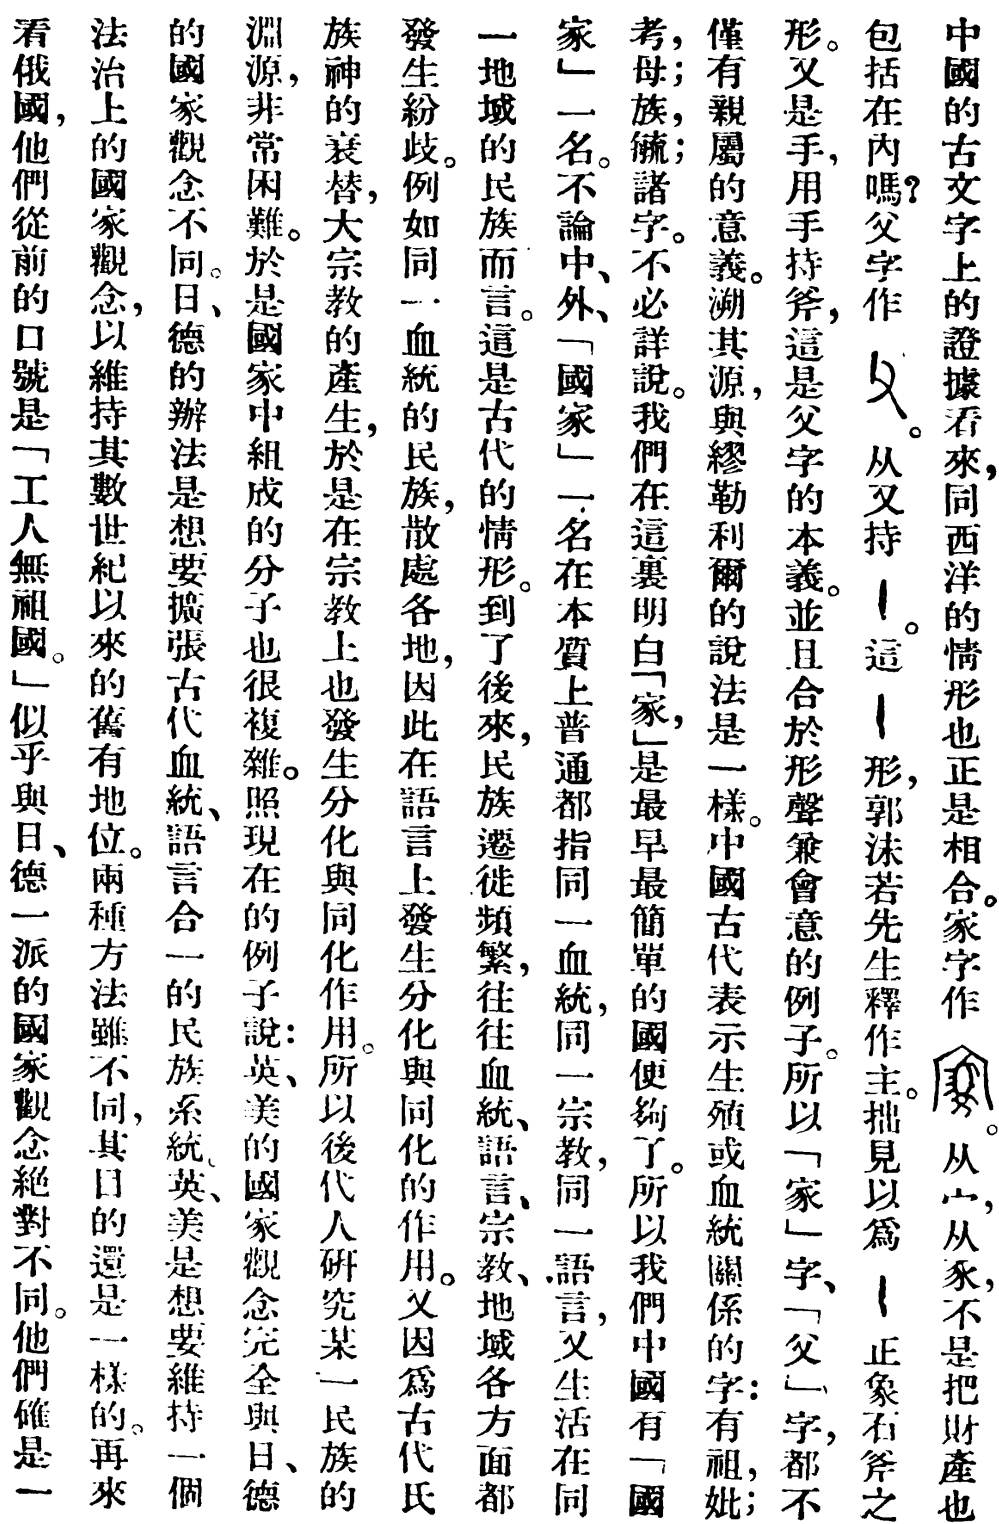 中國的古文字上的證據看來，同西洋的情形也正是相合。家字作。从宀，从豕，不是把財產也
包括在內嗎？父字作。从又持。這形，郭沫若先生釋作主。拙見以爲正象石斧之
形。又是手，用手持斧，這是父字的本義。並且合於形聲兼會意的例子。所以「家」字、「父」字，都不
僅有親屬的意義。溯其源，與繆勒利爾的說法是一樣。中國古代表示生殖或血統關係的字：有祖，妣；
考，母；族，毓；諸字。不必詳說。我們在這裏明白「家，」是最早最簡單的國便夠了。所以我們中國有「國
家」一名。不論中、外、「國家」一名在本質上普通都指同一血統，同一宗教，同一語言，又生活在同
一地域的民族而言。這是古代的情形。到了後來，民族遷徙頻繁，往往血統、語言、宗教、地域各方面都
發生紛歧。例如同一血統的民族，散處各地，因此在語言上發生分化與同化的作用。又因爲古代氏
族神的衰替，大宗教的產生，於是在宗教上也發生分化與同化作用。所以後代人研究某一民族的
淵源，非常困難。於是國家中組成的分子也很複雜。照現在的例子說：英、美的國家觀念完全與日、德
的國家觀念不同。日、德的辦法是想要擴張古代血統、語言合一的民族系統。英、美是想要維持一個
法治上的國家觀念，以維持其數世紀以來的舊有地位。兩種方法雖不同，其目的還是一樣的。再來
看俄國，他們從前的口號是「工人無祖國。」似乎與日、德一派的國家觀念絕對不同。他們確是一